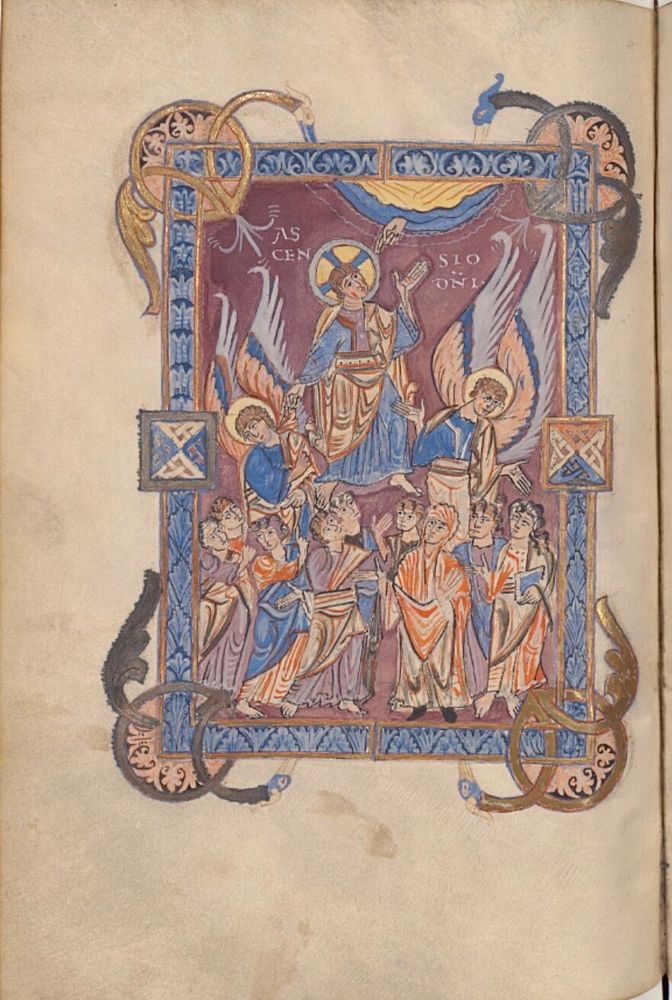 AS
CEN SIO
DÑI